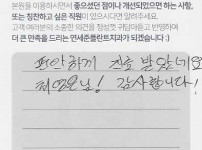 본원을 이용하시면서 좋으셨던 점이나 개선되었으면 하는 사항,
또는 칭찬하고 싶은 직원이 있으시다면 알려주세요.
고객 여러분의 소중한 의견을 정성껏 귀담아듣고 반영하여
더 큰 만족을 드리는 연세준플란트치과가 되겠습니다 :)
편안하게 진료 받았네요
감사합니다!